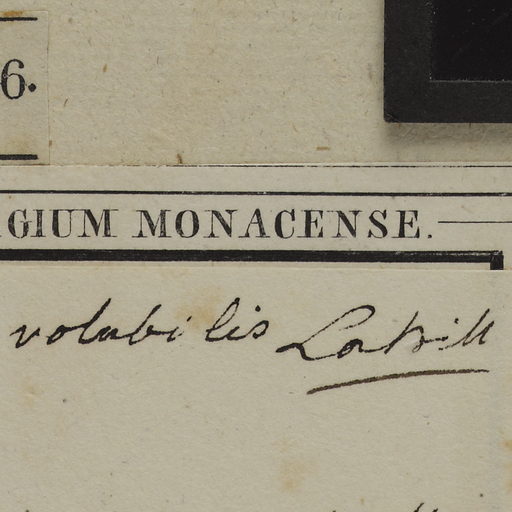 6.
GIUM MONACENSE.
volubilis Labill